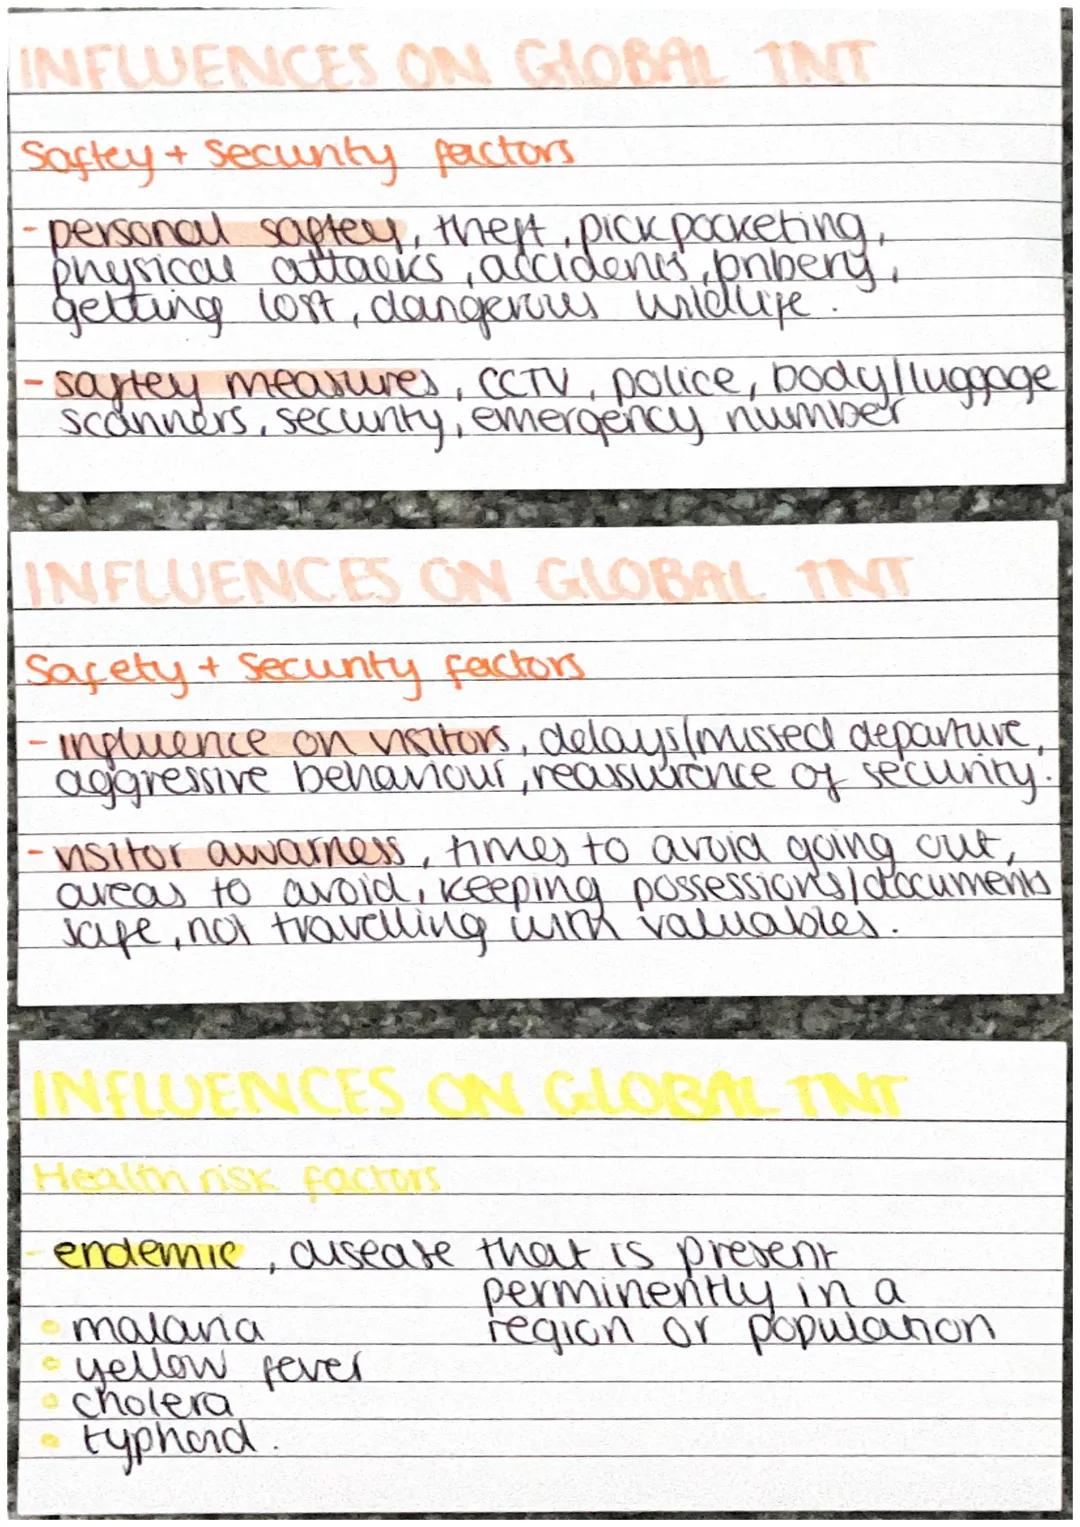 INFLUENCES ON GLOBAL TNT
Saftey + Security factors
- personal saftey, theft, pickpocketing,
physical attacks, accidents, bribery,
getting lost, dangerous wildlife.
- saftey measures, CCTV, police, body/luggage
scanners, security, emergency number
INFLUENCES ON GLOBAL TNT
Safety + Security factors
- influence on visitors, delays/missed departure,
aggressive behaviour, reassurence of security.
- visitor awarness, times to avoid going out,
areas to avoid, keeping possessions/documents
safe, not travelling with valuables.
INFLUENCES ON GLOBAL TNT
Health risk factors
- endemic, disease that is present
perminently in a
• malaria region or population
• yellow fever
• cholera
• typhoid.